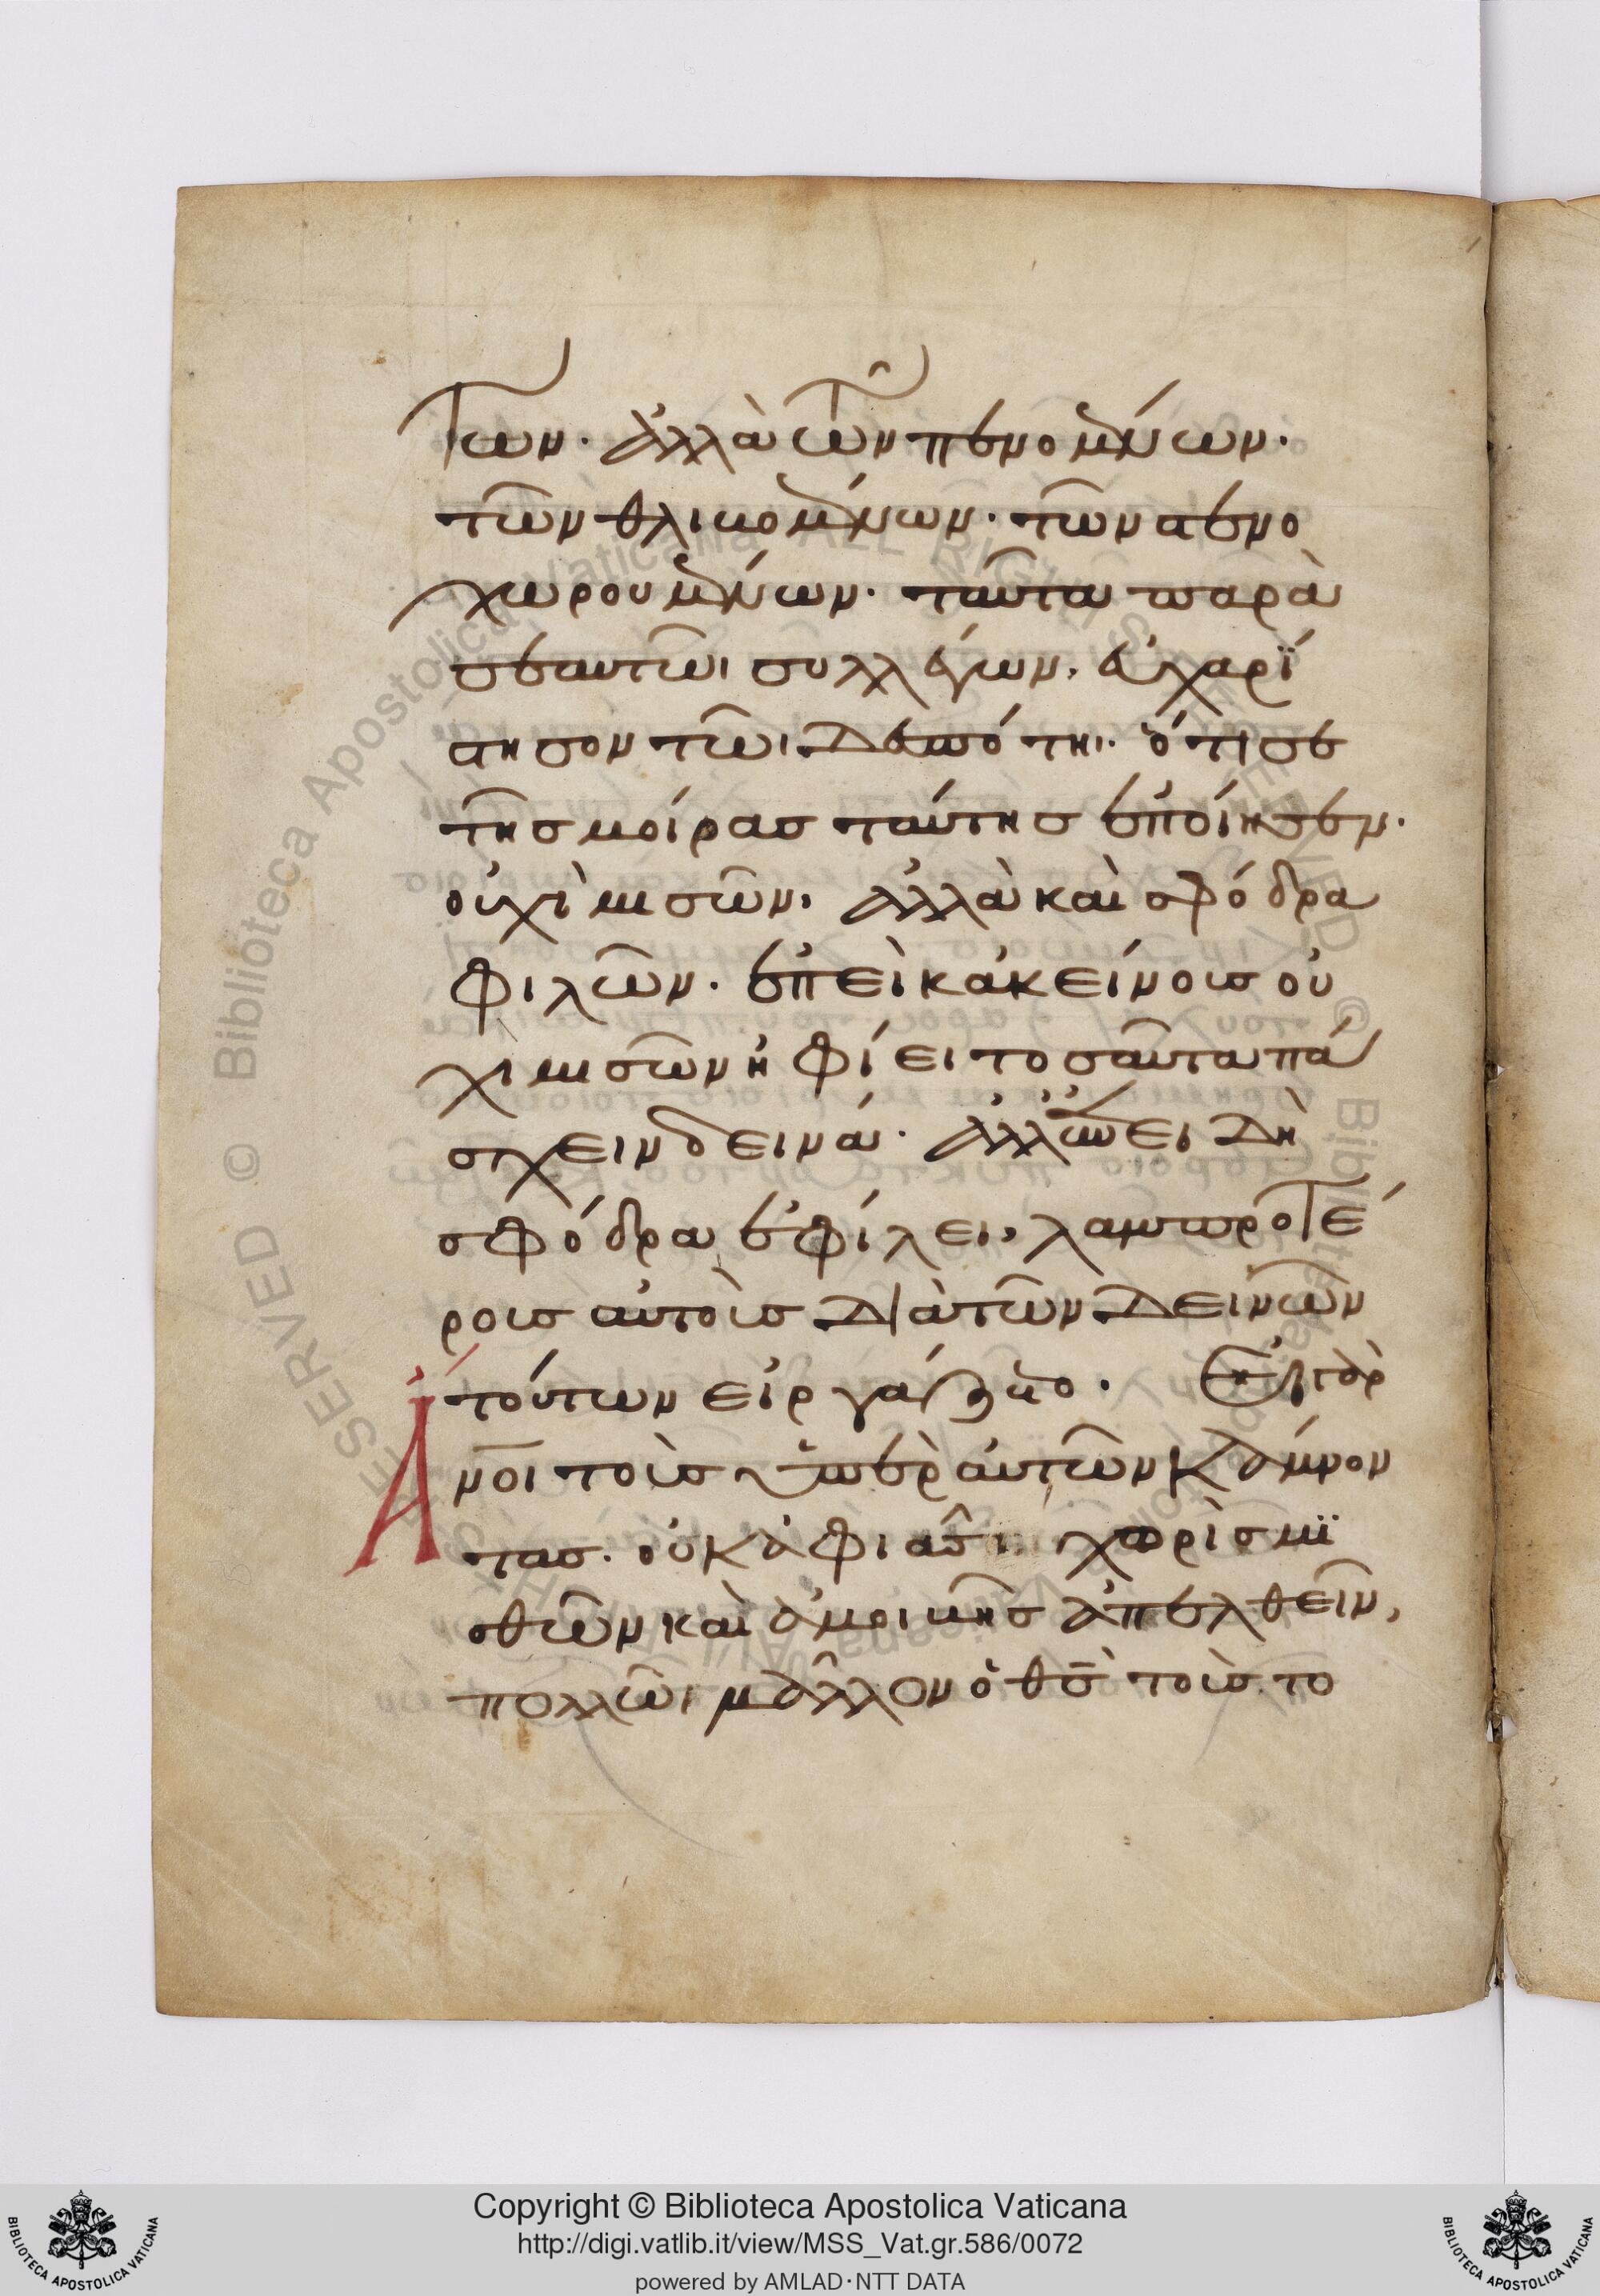 των· ἀλλὰ τῶν πενομένων·
τῶν θλιβομένων· τῶν στενο
χωρουμένων· ταῦτα παρὰ
σεαυτῶι συλλέγων, εὐχαρί
στησον τῶι Δεσπότηι· ὅτι σε
τῆς μοίρας ταύτης ἐποίησεν·
οὐχὶ μισῶν, ἀλλὰ καὶ σφόδρα
φιλῶν· ἐπεὶ κἀκείνους οὐ
χὶ μισῶν ἠφίει τοσαῦτα πά
σχειν δεινά· ἀλλ' ἐπειδὴ
σφόδρα ἐφίλει, λαμπροτέ
ρους αὐτοὺς διὰ τῶν δεινῶν
τούτων εἰργάζετο· Εἰ γὰρ
ἄνοι τοὺς ὑπὲρ αὐτῶν κάμνον
τας· οὐκ ἀφιᾶσι χωρὶς μι
σθῶν καὶ ἀμοιβῆς ἀπελθεῖν,
πολλῶι μᾶλλον ὁ θς τοὺς το
Copyright © Biblioteca Apostolica Vaticana
http://digi.vatlib.it/view/MSS_Vat.gr.586/0072
powered by AMLAD·NTT DATA
BIBLIOTECA APOSTOLICA VATICANA
BIBLIOTECA APOSTOLICA VATICANA